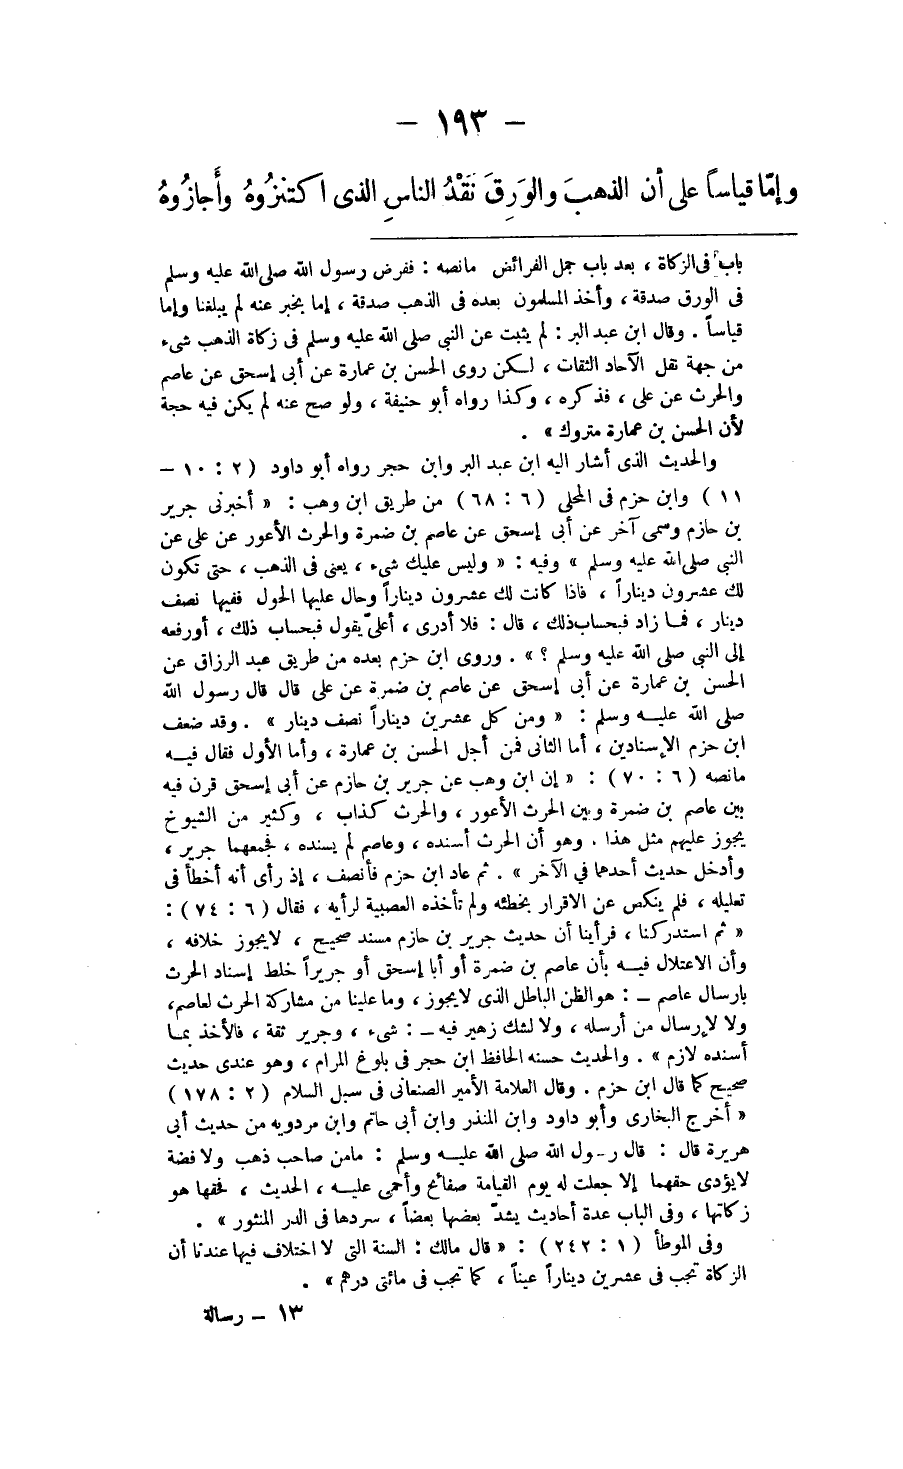 — ١٩٣ —
وإمّا قياساً على أن الذهبَ والوَرِقَ نَقْدُ الناسِ الذى اكتنزُوهُ وأَجازُوهُ
باب فى الزكاة ، بعد باب جمل الفرائض مانصه : ففرض رسول الله صلى الله عليه وسلم
فى الورق صدقة ، وأخذ المسلمون بعده فى الذهب صدقة ، إما بخبر عنه لم يبلغنا وإما
قياساً . وقال ابن عبد البر : لم يثبت عن النبي صلى الله عليه وسلم فى زكاة الذهب شىء
من جهة نقل الآحاد الثقات ، لـكن روى الحسن بن عمارة عن أبى إسحق عن عاصم
والحرث عن على ، فذكره ، وكذا رواه أبو حنيفة ، ولو صح عنه لم يكن فيه حجة
لأن الحسن بن عمارة متروك » .
والحديث الذى أشار اليه ابن عبد البر وابن حجر رواه أبو داود ( ٢ : ١٠ –
١١ ) وابن حزم فى المحلى ( ٦ : ٦٨ ) من طريق ابن وهب : « أخبرنى جرير
بن حازم وسمى آخر عن أبى إسحق عن عاصم بن ضمرة والحرث الأعور عن على عن
النبي صلى الله عليه وسلم » وفيه : « وليس عليك شىء ، يعنى فى الذهب ، حتى تكون
لك عشرون ديناراً ، فاذا كانت لك عشرون ديناراً وحال عليها الحول ففيها نصف
دينار ، فمـا زاد فبحساب ذلك ، قال : فلا أدرى ، أعلىّ يقول فبحساب ذلك ، أورفعه
إلى النبي صلى الله عليه وسلم ؟ » . وروى ابن حزم بعده من طريق عبد الرزاق عن
الحسن بن عمارة عن أبى إسحق عن عاصم بن ضمرة عن على قال قال رسول الله
صلى الله عليـه وسلم : « ومن كل عشرين ديناراً نصف دينار » . وقد ضعف
ابن حزم الإسنادين ، أما الثانى فمن أجل الحسن بن عمارة ، وأما الأول فقال فيـه
مانصه ( ٦ : ٧٠ ) : « إن ابن وهب عن جرير بن حازم عن أبى إسحق قرن فيه
بين عاصم بن ضمرة وبين الحرث الأعور ، والحرث كذاب ، وكثير من الشيوخ
يجوز عليهم مثل هذا . وهو أن الحرث أسنده ، وعاصم لم يسنده ، فجمعهما جرير ،
وأدخل حديث أحدهما في الآخر » . ثم عاد ابن حزم فأنصف ، إذ رأى أنه أخطأ فى
تعليله ، فلم ينكص عن الاقرار بخطئه ولم تأخذه العصبية لرأيه ، فقال ( ٦ : ٧٤ ) :
« ثم استدركنا ، فرأينا أن حديث جرير بن حازم مسند صحيح ، لايجوز خلافه ،
وأن الاعتلال فيـه بأن عاصم بن ضمرة أو أبا إسحق أو جريراً خلط إسناد الحرث
بارسال عاصم ــ : هو الظن الباطل الذى لايجوز ، وما علينا من مشاركة الحرث لعاصم،
ولا لإرسال من أرسله ، ولا لشك زهير فيه ــ : شىء ، وجرير ثقة ، فالأخذ بمـا
أسنده لازم » . والحديث حسنه الحافظ ابن حجر فى بلوغ المرام ، وهو عندى حديث
صحيح كما قال ابن حزم . وقال العلامة الأمير الصنعانى فى سبل السلام ( ٢ : ١٧٨ )
« أخرج البخارى وأبو داود وابن المنذر وابن أبى حاتم وابن مردويه من حديث أبى
هريرة قال : قال رسول الله صلى الله عليـه وسلم : مامن صاحب ذهب ولا فضة
لايؤدى حقهما إلا جعلت له يوم القيامة صفائح وأحمى عليـه ، الحديث ، فحقها هو
زكاتها ، وفى الباب عدة أحاديث يشدّ بعضها بعضاً ، سردها فى الدر المنثور » .
وفى الموطأ ( ١ : ٢٤٢ ) : « قال مالك : السنة التى لا اختلاف فيها عندنا أن
الزكاة تجب فى عشرين ديناراً عيناً ، كما تجب فى مائتى درهم » .
١٣ – رسالة